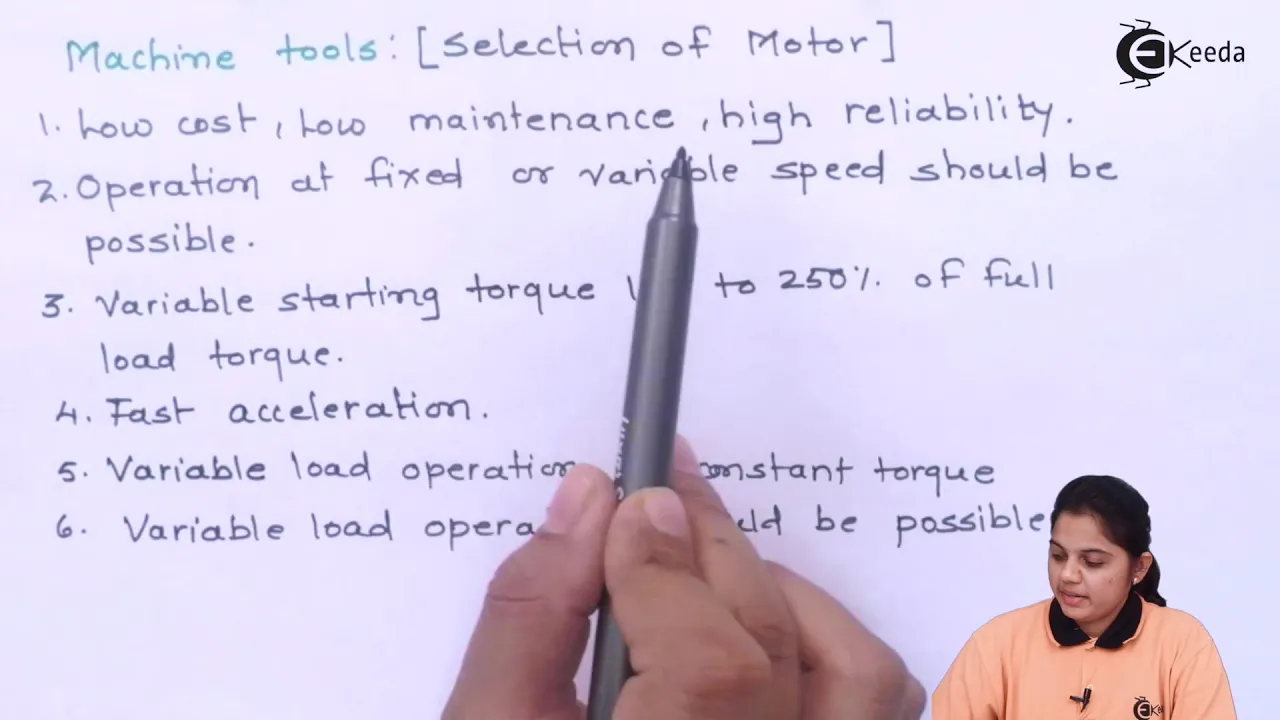 Machine tools: [Selection of Motor]
Keeda
1. Low cost, Low maintenance, high reliability.
2. Operation at fixed or variable speed should be
possible.
3. Variable starting torque to 250% of full
load torque.
4. Fast acceleration.
5. Variable load torque
6. Variable load be possible